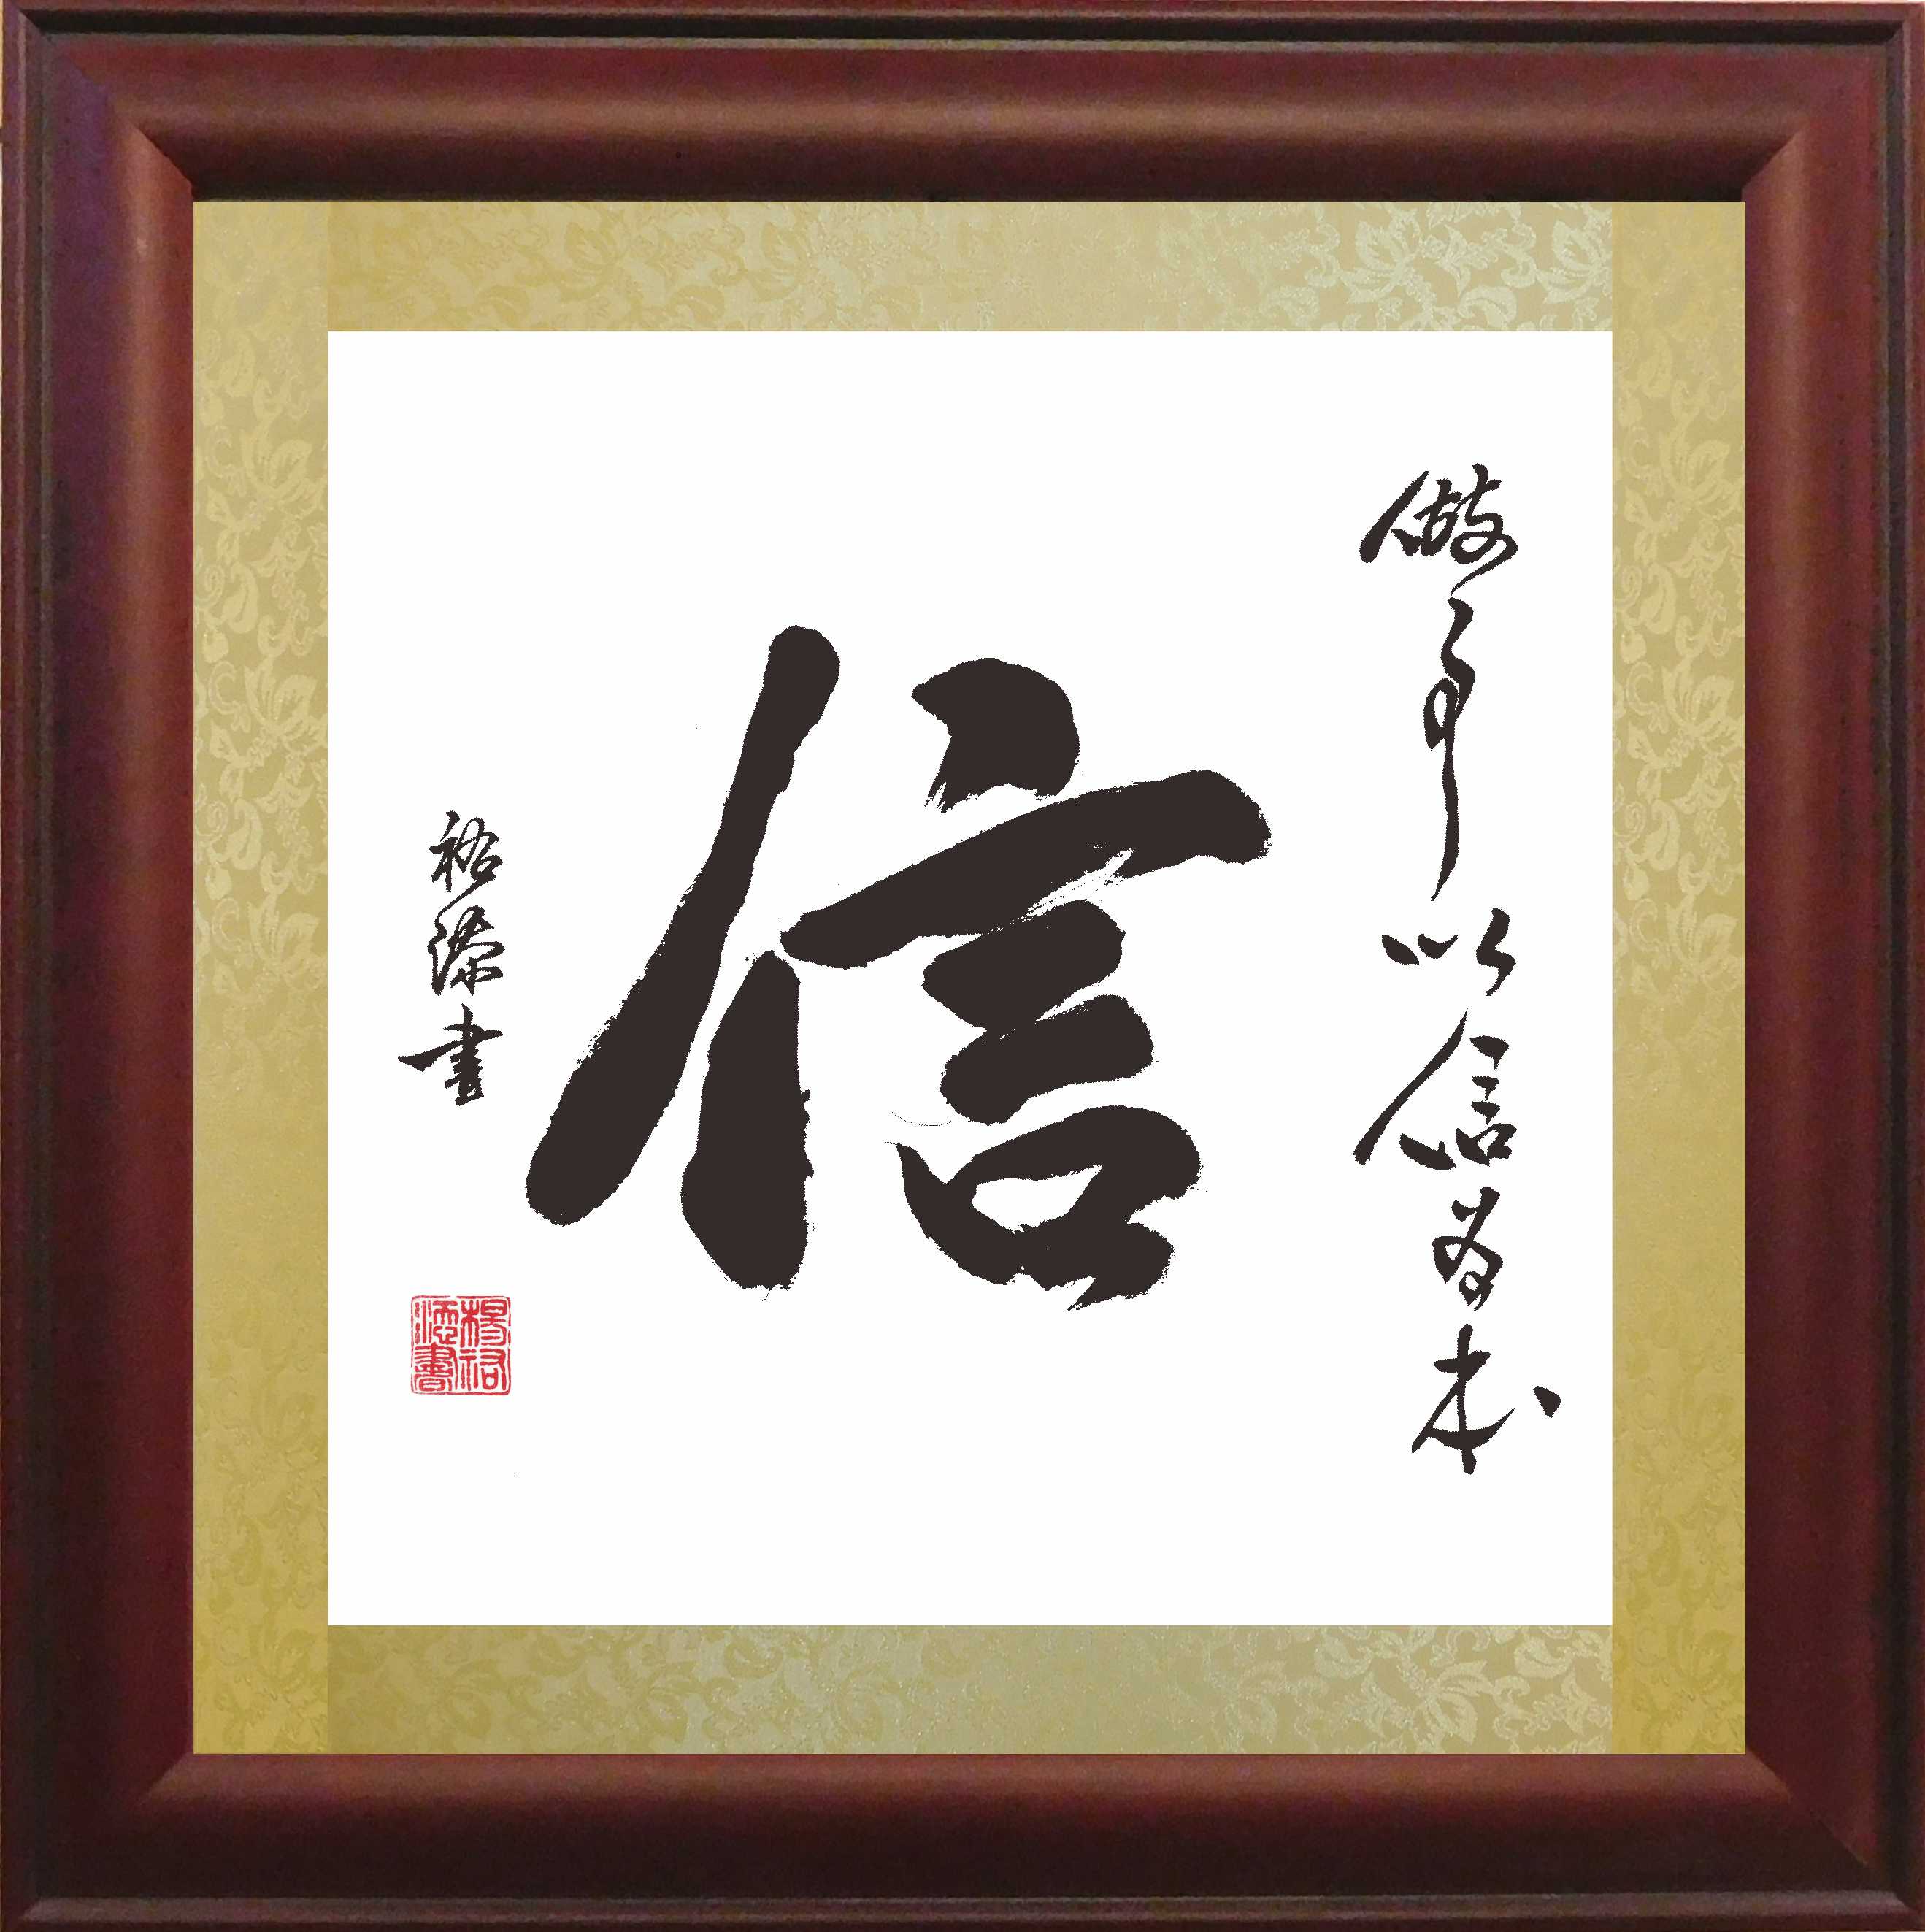 做事以信為本
信
裕添書
楊裕添書